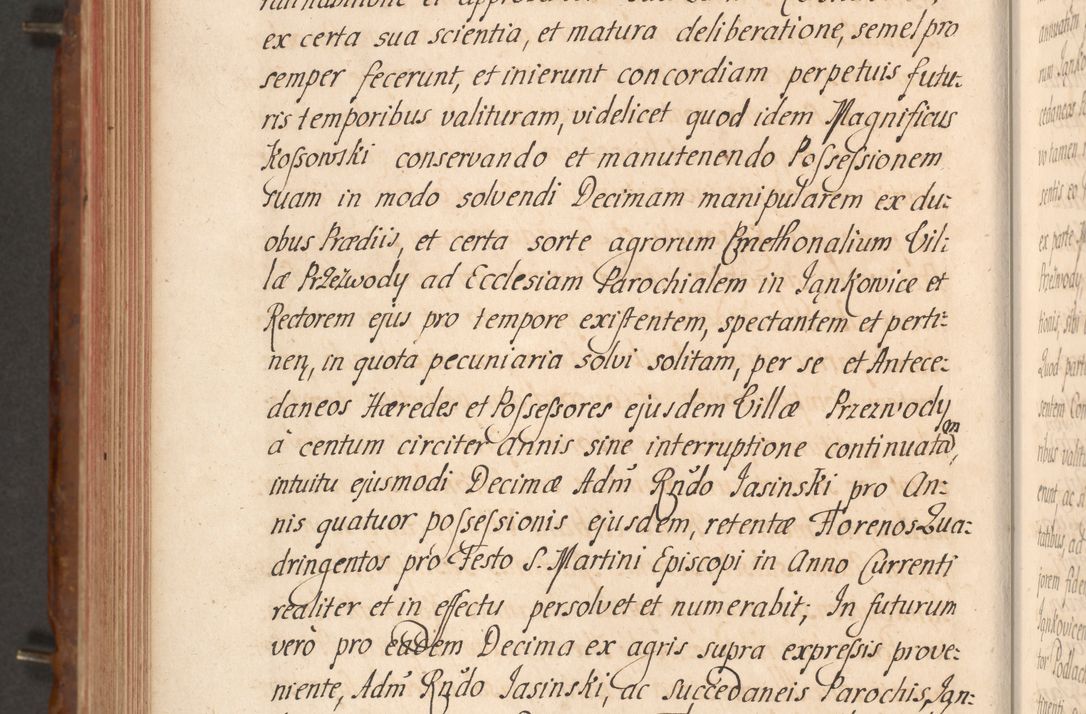 ex certa sua scientia, et matura deliberatione, semel pro
semper fecerunt, et inierunt concordiam perpetuis futu:
ris temporibus valituram, videlicet quod idem Magnificus
Koſsowski conservando et manutenendo Poſseſsionem
suam in modo solvendi Decimam manipularem ex du:
obus Prædiis, et certa sorte agrorum Cmethonalium Vil:
læ Przezwody ad Ecclesiam Parochialem in Jankowice et
Rectorem ejus pro tempore existentem, spectantem et perti:
nen, in quota pecuniaria solvi solitam, per se et Antece:
daneos Hæredes et Poſseſsores ejusdem Villæ Przezwody
à centum circiter annis sine interruptione continuatam,
intuitu ejusmodi Decimæ Adm̃ Rñdo Jasinski pro An:
nis quatuor poſseſsionis ejusdem, retentæ Florenos Qua:
dringentos pro Festo S. Martini Episcopi in Anno Currenti
realiter et in effectu persolvet et numerabit; In futurum
verò pro eadem Decima ex agris supra expreſsis prove:
niente, Adm̃ Rñdo Jasinski, ac succedaneis Parochis Jan: